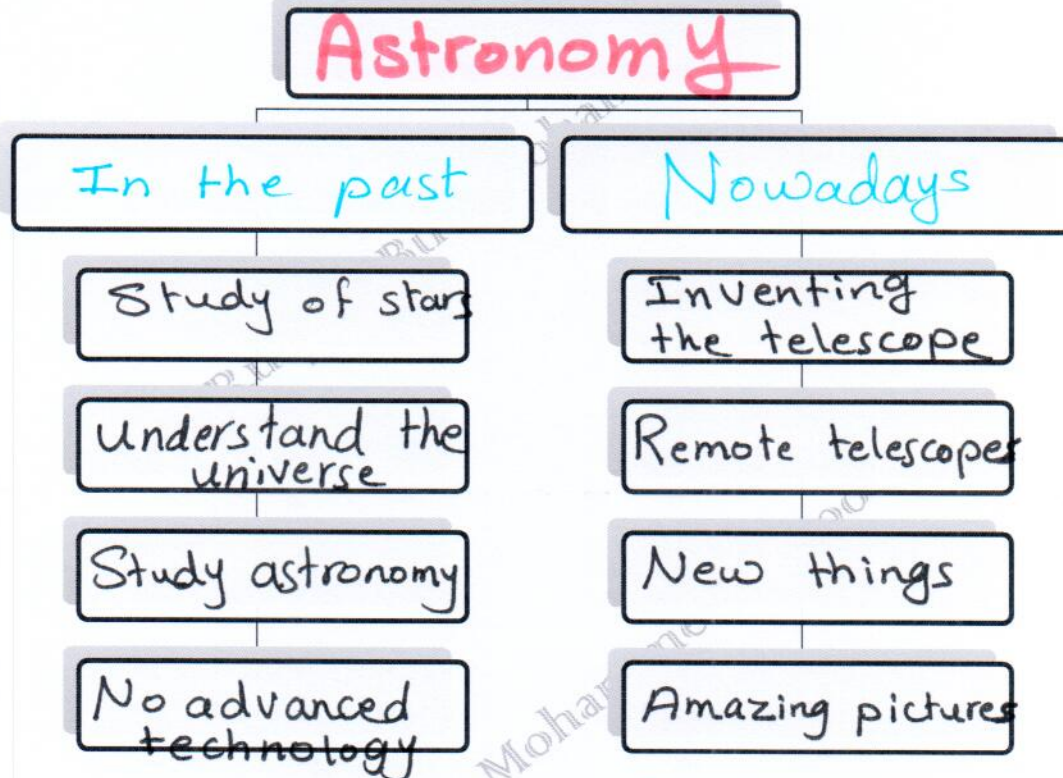 Astronomy
In the past
Study of stars
Understand the
universe
Study astronomy
No advanced
technology
Nowadays
Inventing
the telescope
Remote telescopes
New things
Amazing pictures